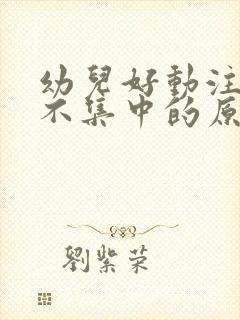 幼兒好動注
不集中的原
劉紫荣